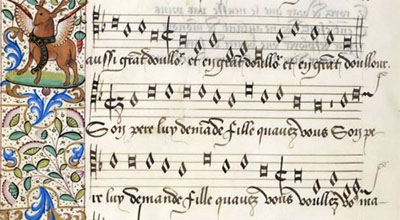 aussi grāt doullo². et en grāt doullo² et en grāt doullour.
Son pere luy demāde fille quauez vous Son pe-
re luy demande fille quauez vous voullez vo⁹ ma-